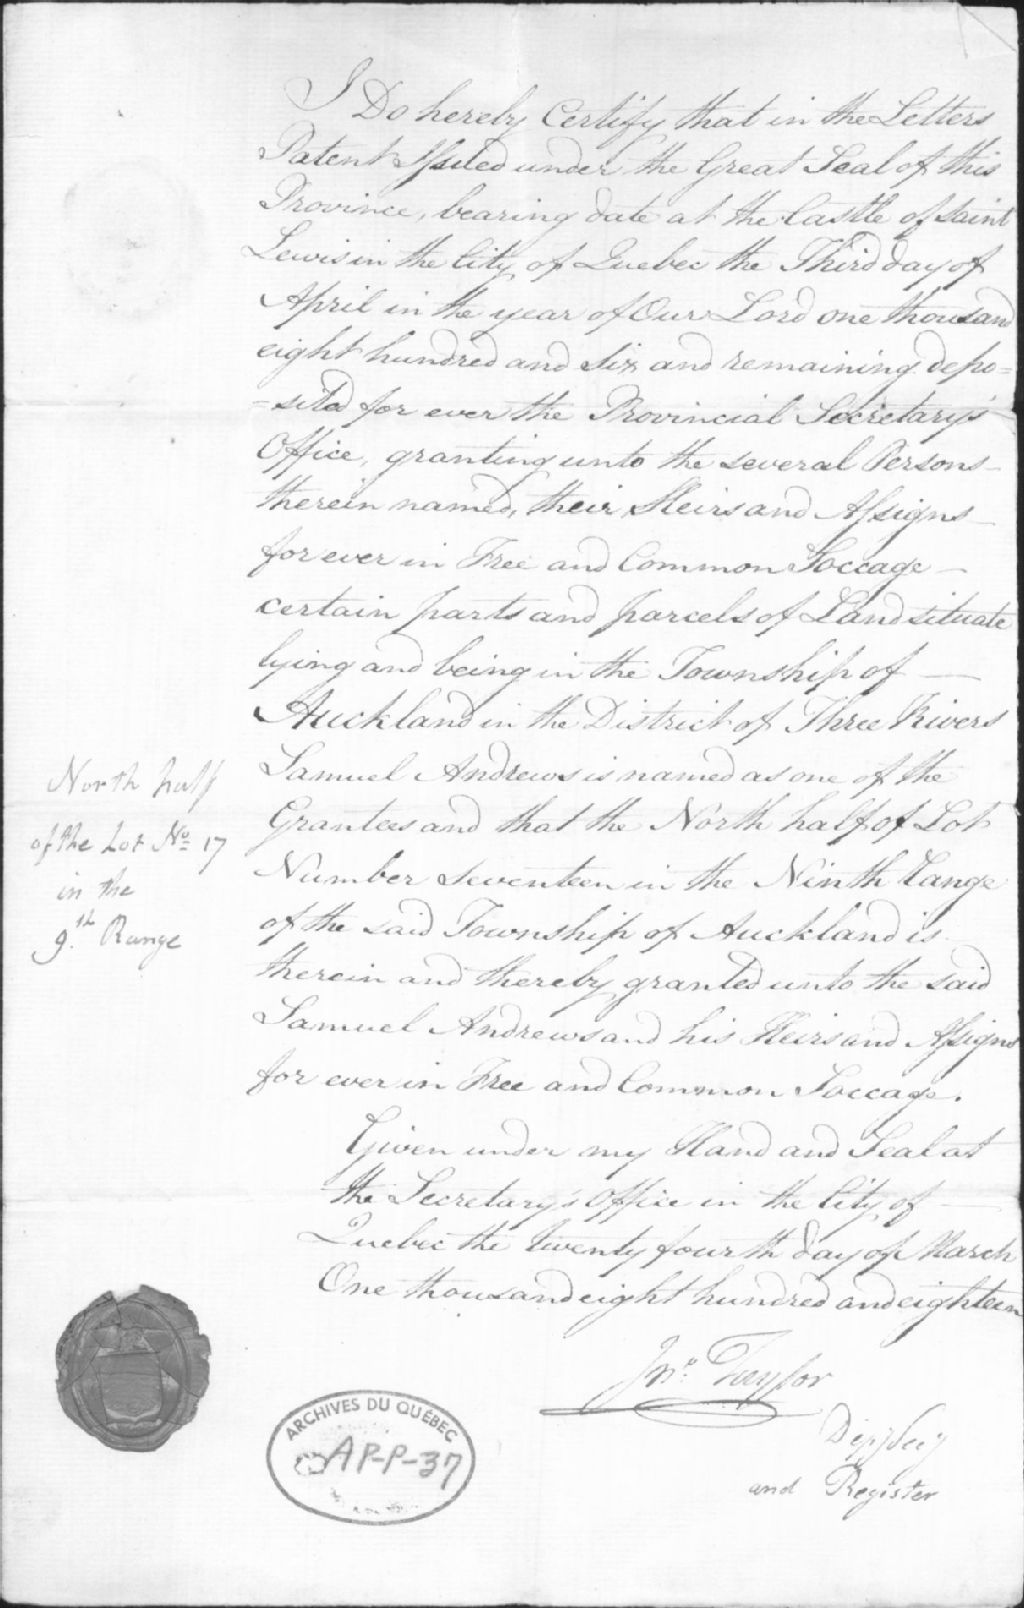 I Do hereby Certify that in the Letters
Patent Issued under the Great Seal of this
Province, bearing date at the Castle of Saint
Lewis in the City of Quebec the Third day of
April in the year of Our Lord one thousand
eight hundred and six and remaining depo=
=sited for ever the Provincial Secretary's
Office, granting unto the several Persons
therein named, their Heirs and Assigns
for ever in Free and Common Soccage
certain parts and parcels of Land situate
lying and being in the Township of
Auckland in the District of Three Rivers
Samuel Andrews is named as one of the
Grantees and that the North half of Lot
Number seventeen in the Ninth Range
of the said Township of Auckland is
therein and thereby granted unto the said
Samuel Andrews and his Heirs and Assigns
for ever in Free and Common Soccage.
Given under my Hand and Seal at
the Secretary's Office in the City of
Quebec the twenty fourth day of March
One thousand eight hundred and eighteen
Jno. Taylor
Depy Secy
and Register
North half
of the Lot No. 17
in the
9.th Range
ARCHIVES DU QUÉBEC
AP-P-37